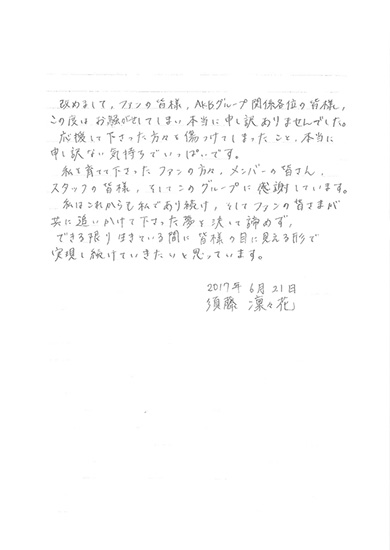 改めまして、ファンの皆様、AKBグループ関係各位の皆様、
この度はお騒がせしてしまい本当に申し訳ありませんでした。
応援して下さった方々を傷つけてしまったこと、本当に
申し訳ない気持ちでいっぱいです。
私を育てて下さったファンの方々、メンバーの皆さん、
スタッフの皆様、そしてこのグループに感謝しています。
私はこれからも私であり続け、そしてファンの皆さまが
共に追いかけて下さった夢を決して諦めず、
できる限り生きている間に皆様の目に見える形で
実現し続けていきたいと思っています。
2017年 6月 21日
須藤 凜々花